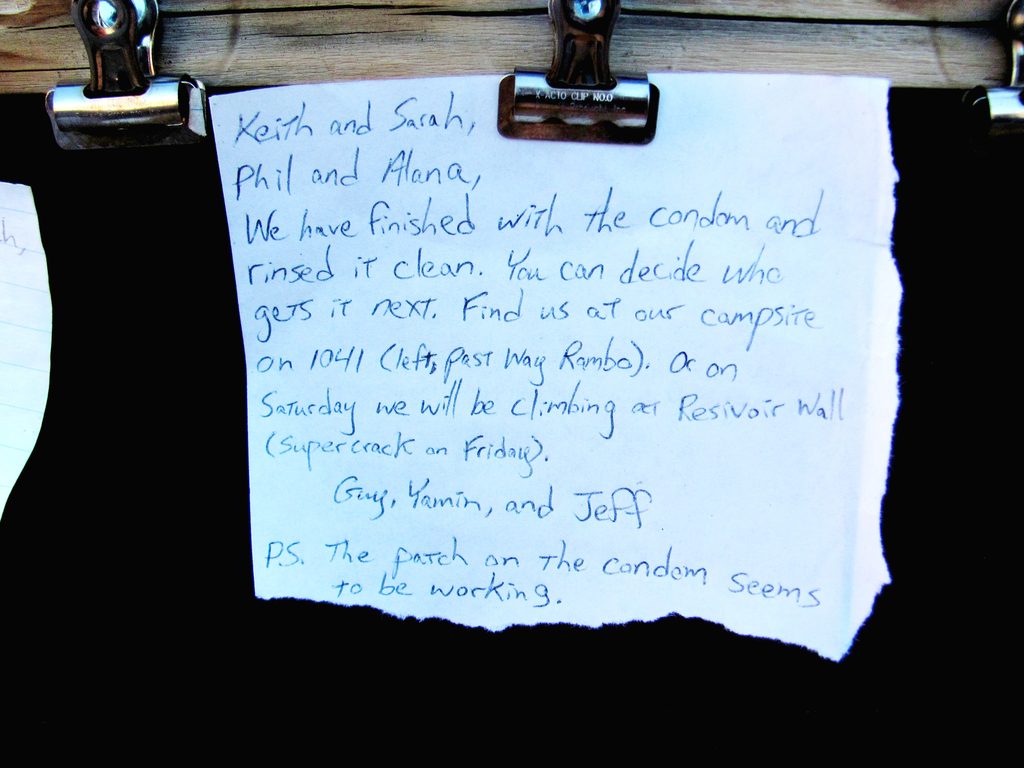 X-ACTO CLIP NO.0
Keith and Sarah,
Phil and Alana,
We have finished with the condom and
rinsed it clean. You can decide who
gets it next. Find us at our campsite
on 1041 (left, past Way Rambo). Or on
Saturday we will be climbing at Resivoir Wall
(Supercrack on Friday).
Guy, Yamin, and Jeff
P.S. The patch on the condom seems
to be working.
h,